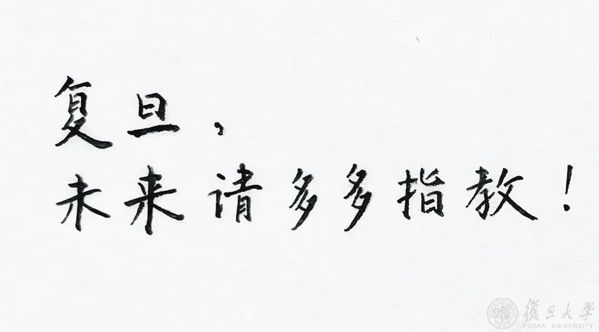 复旦，
未来请多多指教！
復旦大學
FUDAN UNIVERSITY